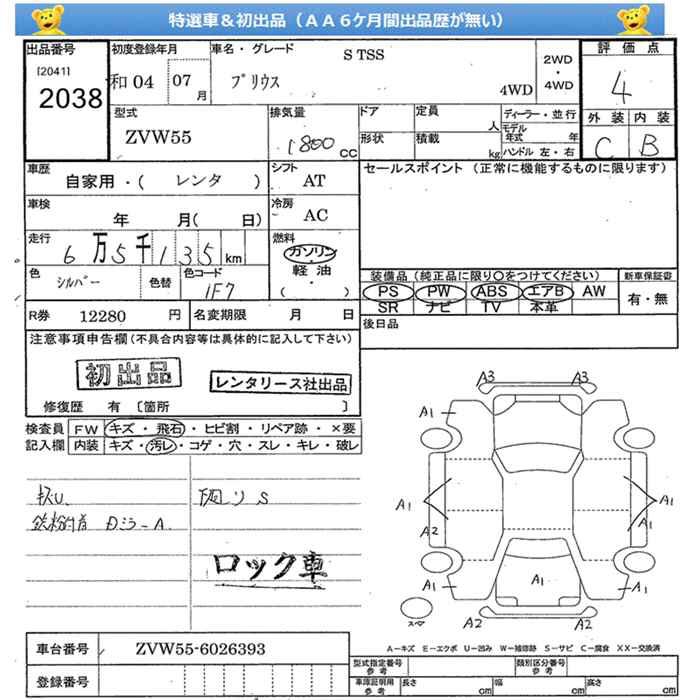 特選車&初出品（ＡＡ6ケ月間出品歴が無い）
出品番号 初度登録年月 車名・グレード S TSS 評価点
[2041] 和04 07月 プリウス 4WD 2WD・4WD 4
2038
型式 排気量 ドア 定員 人 ディーラー・並行 外装 内装
ZVW55 1800 cc 形状 積載 kg モデル年式 年 ハンドル 左・右 C B
車歴 シフト セールスポイント（正常に機能するものに限ります）
自家用・( レンタ ) AT
車検 冷房
年 月( 日) AC
走行 燃料
6万5千135km ガソリン・軽油・( )
色 色替 色コード 装備品（純正品に限り○をつけてください） 新車保証書
シルバー 1F7 PS PW ABS エアB AW 有・無
SR ナビ TV 本革
R券 12280 円 名変期限 月 日 後日品
注意事項申告欄（不具合内容等は具体的に記入して下さい）
初出品 レンタリース社出品
修復歴 有 〔箇所 〕
検査員 FW キズ・飛石・ヒビ割・リペア跡・×要
記入欄 内装 キズ・汚レ・コゲ・穴・スレ・キレ・破レ
A3 A3
A1 A1
A1 A1
A2 A1
A1 A1 A1
スペア A2 A2
ロック車
車台番号 ZVW55-6026393
A－キズ E－エクボ U－凹み W－補修跡 S－サビ C－腐食 XX－交換済
登録番号
型式指定番号 参考 類別区分番号 参考
車庫証明用 参考 長さ cm 幅 cm 高さ cm